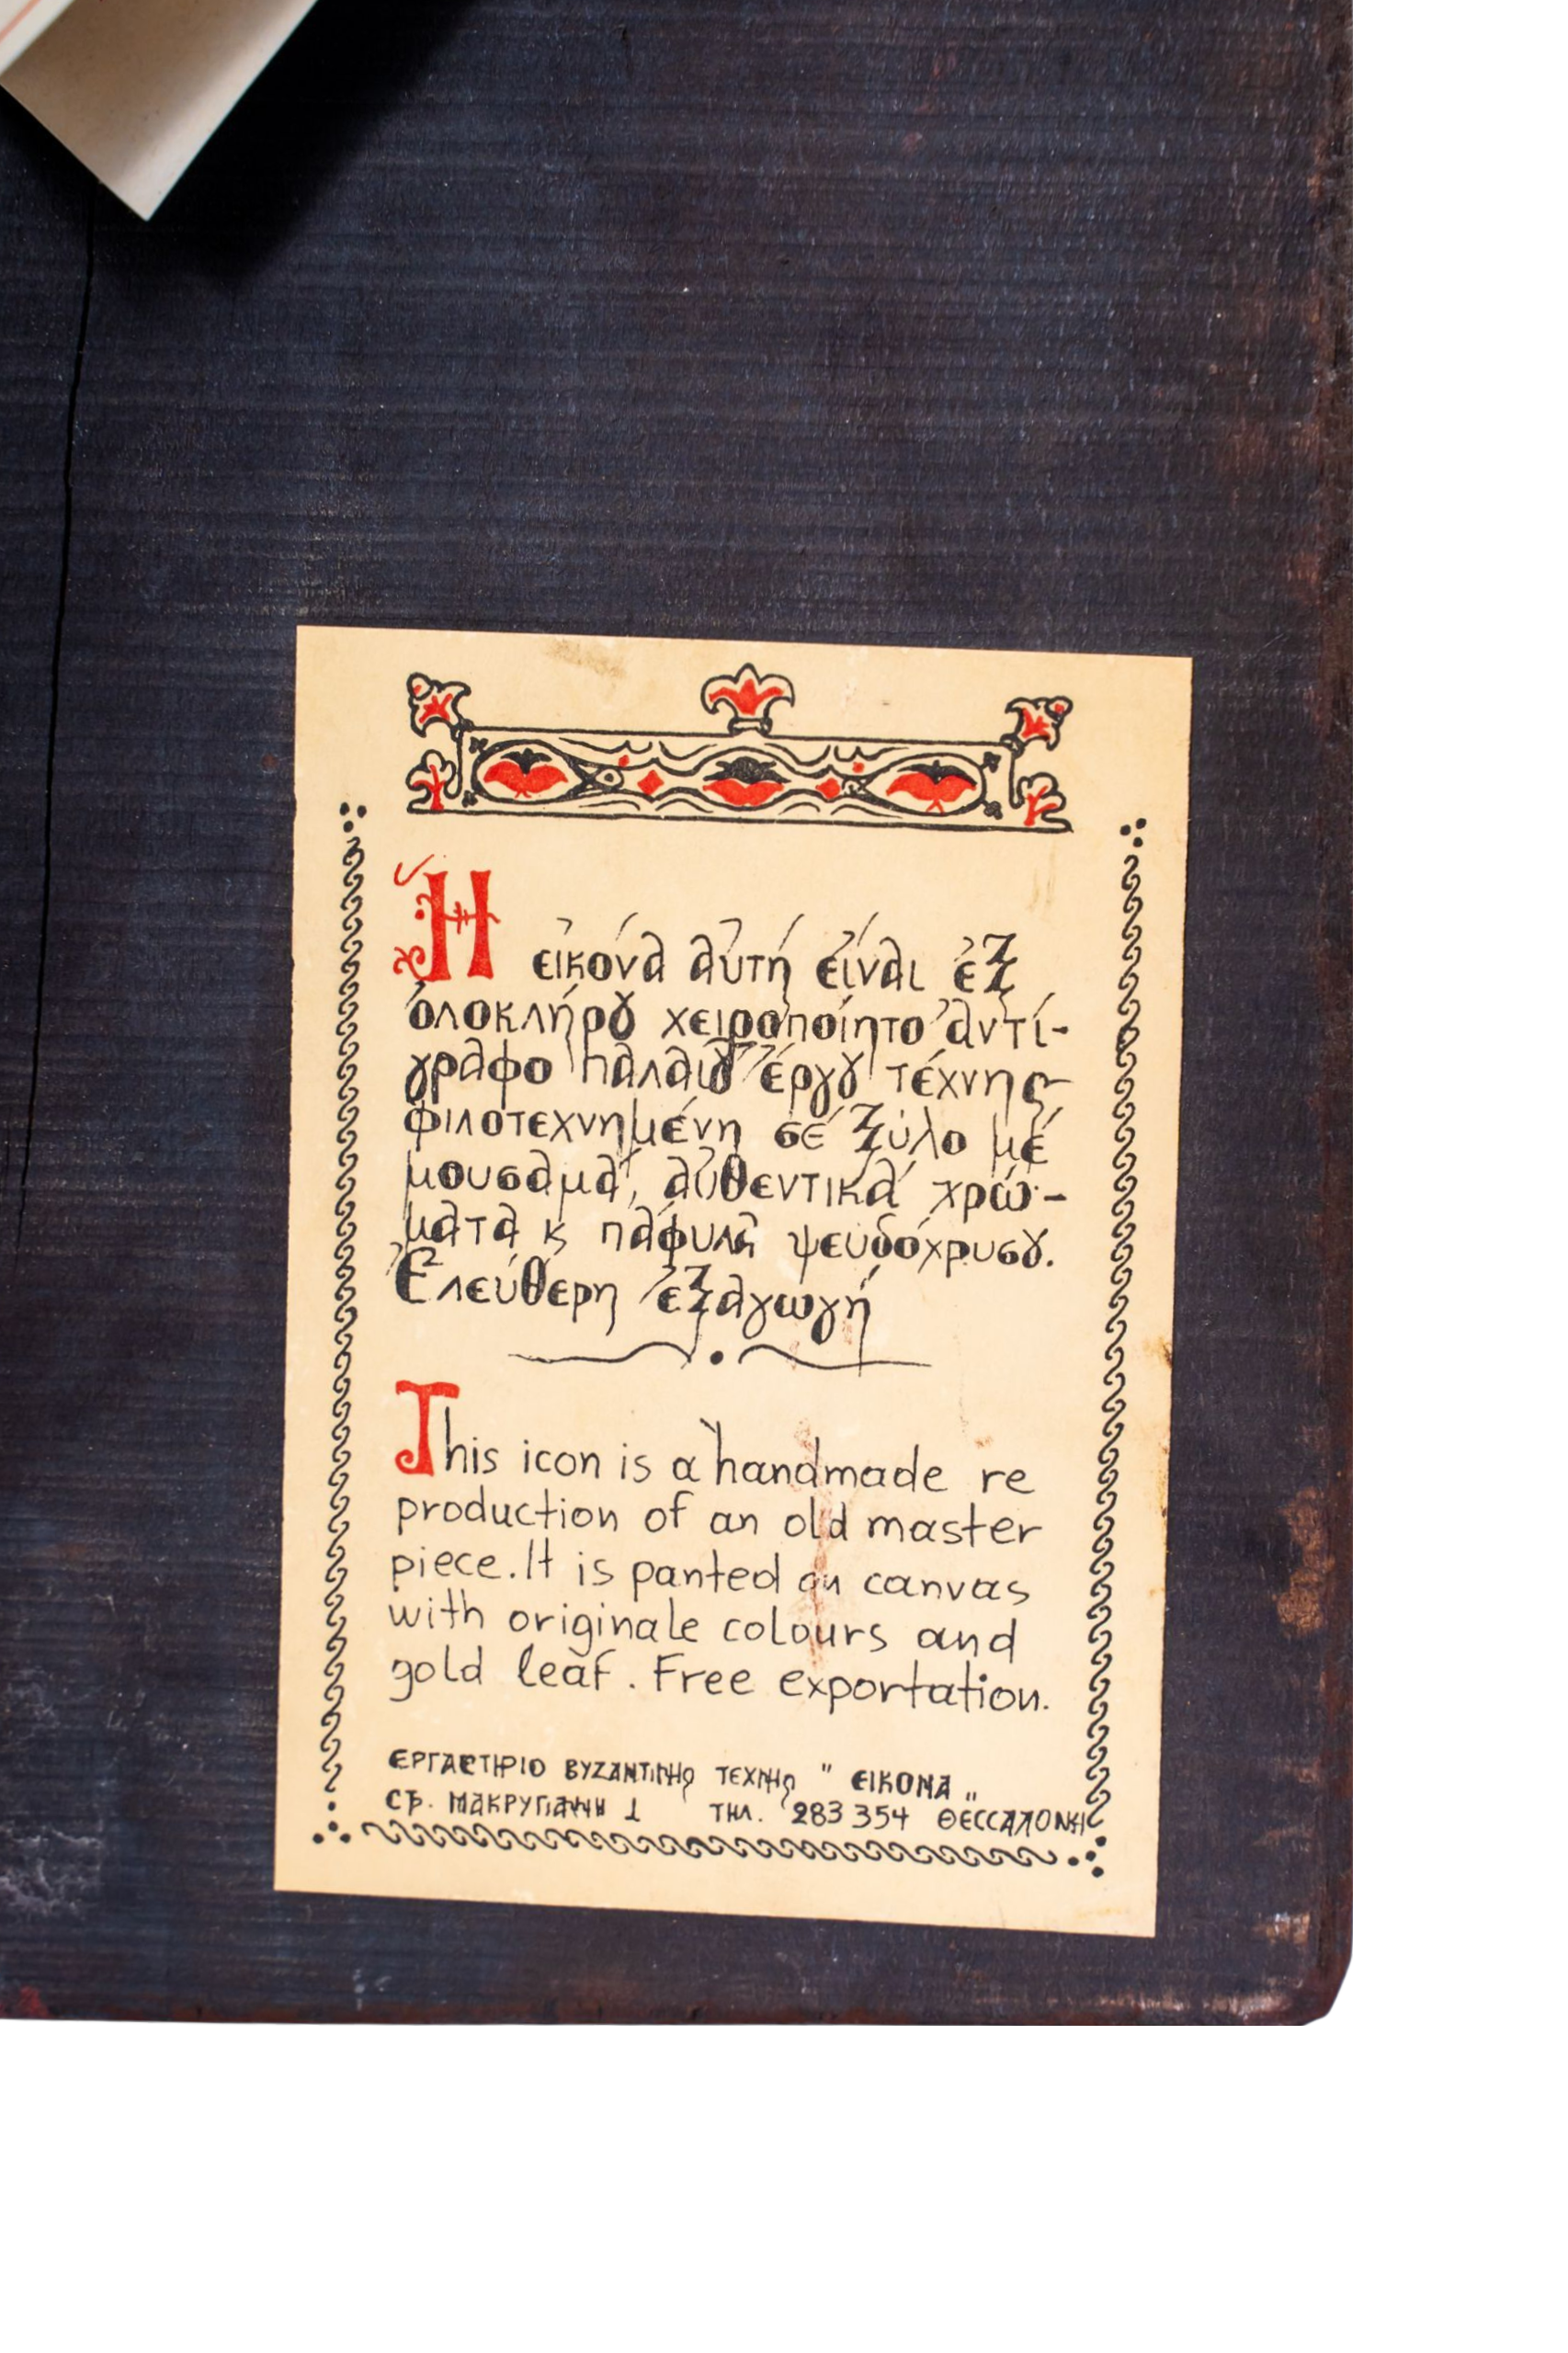 Ἡ εἰκόνα αὐτή εἶναι ἐξ
ὁλοκλήρȣ χειροποίητο ἀντί-
γραφο παλαιȣ͂ ἔργȣ τέχνης
φιλοτεχνημένη σέ ξύλο μέ
μουσαμά, αὐθεντικά χρώ-
ματα κ ψευδόχρυσȣ.
Ἐλεύθερη ἐξαγωγή
This icon is a handmade re
production of an old master
piece. It is panted on canvas
with originale colours and
gold leaf. Free exportation.
ΕΡΓΑСΤΗΡΙΟ ΒΥΖΑΝΤΙΝΗς ΤΕΧΝΗς " ΕΙΚΟΝΑ „
СΤΡ. ΜΑΚΡΥΓΙΑΝΝΗ 1 ΤΗΛ. 283354 ΘΕССΑΛΟΝΙΚΗ